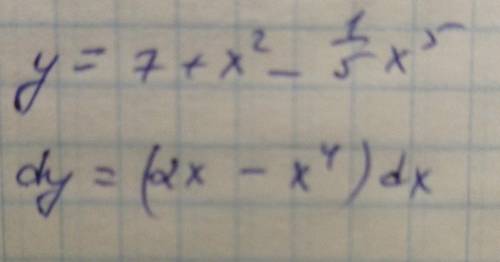 y = 7 + x² - 1/5 x⁵
dy = (2x - x⁴) dx